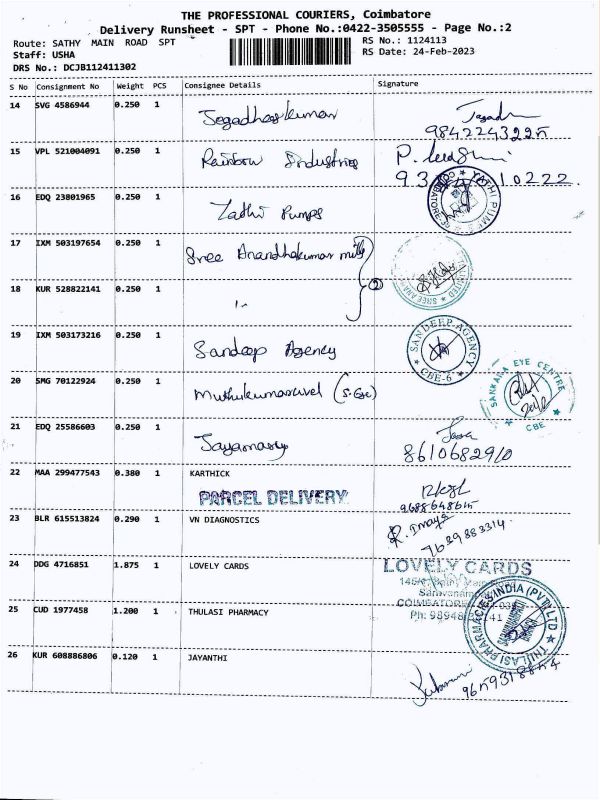 THE PROFESSIONAL COURIERS, Coimbatore
Delivery Runsheet - SPT - Phone No.:0422-3505555 - Page No.:2
Route: SATHY MAIN ROAD SPT
RS No.: 1124113
Staff: USHA
RS Date: 24-Feb-2023
DRS No.: DCJB112411302
S No Consignment No Weight PCS Consignee Details Signature
14 SVG 4586944 0.250 1 Jegadheeskumar
9842243225
15 VPL 521004091 0.250 1 Rainbow Industries P.
10222
16 EDQ 23801965 0.250 1 Zathi Pumps
17 IXM 503197654 0.250 1 Sree Anandhakumar mills
SREE
18 KUR 528822141 0.250 1 " 2
19 IXM 503173216 0.250 1 Sandeep Agency
SANDEEP AGENCY
CBE-6
20 SMG 70122924 0.250 1 Muthukumaravel (S.Eye)
SANKARA EYE CENTRE
CBE
21 EDQ 25586603 0.250 1 Jayamary
8610682910
22 MAA 299477543 0.380 1 KARTHICK
PARCEL DELIVERY
9688648615
23 BLR 615513824 0.290 1 VN DIAGNOSTICS R. Imaya
7639883314
24 DDG 4716851 1.875 1 LOVELY CARDS LOVELY CARDS
COIMBATORE
Ph: 98948
25 CUD 1977458 1.200 1 THULASI PHARMACY
THULASI PHARMACIES INDIA (PVT) LTD
26 KUR 608886806 0.120 1 JAYANTHI
9659318854